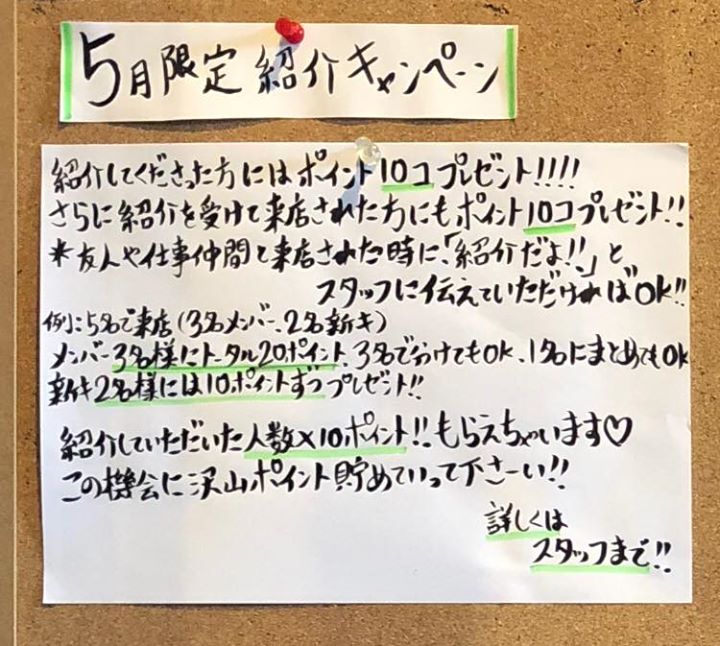 5月限定 紹介キャンペーン
紹介してくださった方にはポイント10コプレゼント!!!!
さらに紹介を受けて来店された方にもポイント10コプレゼント!!
*友人や仕事仲間と来店された時に、「紹介だよ!!」と
スタッフに伝えていただければOK!!
例に5名で来店(3名メンバー、2名新キ)
メンバー3名様にトータル20ポイント、3名で分けてもOK、1名にまとめてもOK
新キ2名様には10ポイントずつプレゼント!!
紹介していただいた人数×10ポイント!!もらえちゃいます♡
この機会に沢山ポイント貯めていって下さーい!!
詳しくは
スタッフまで!!